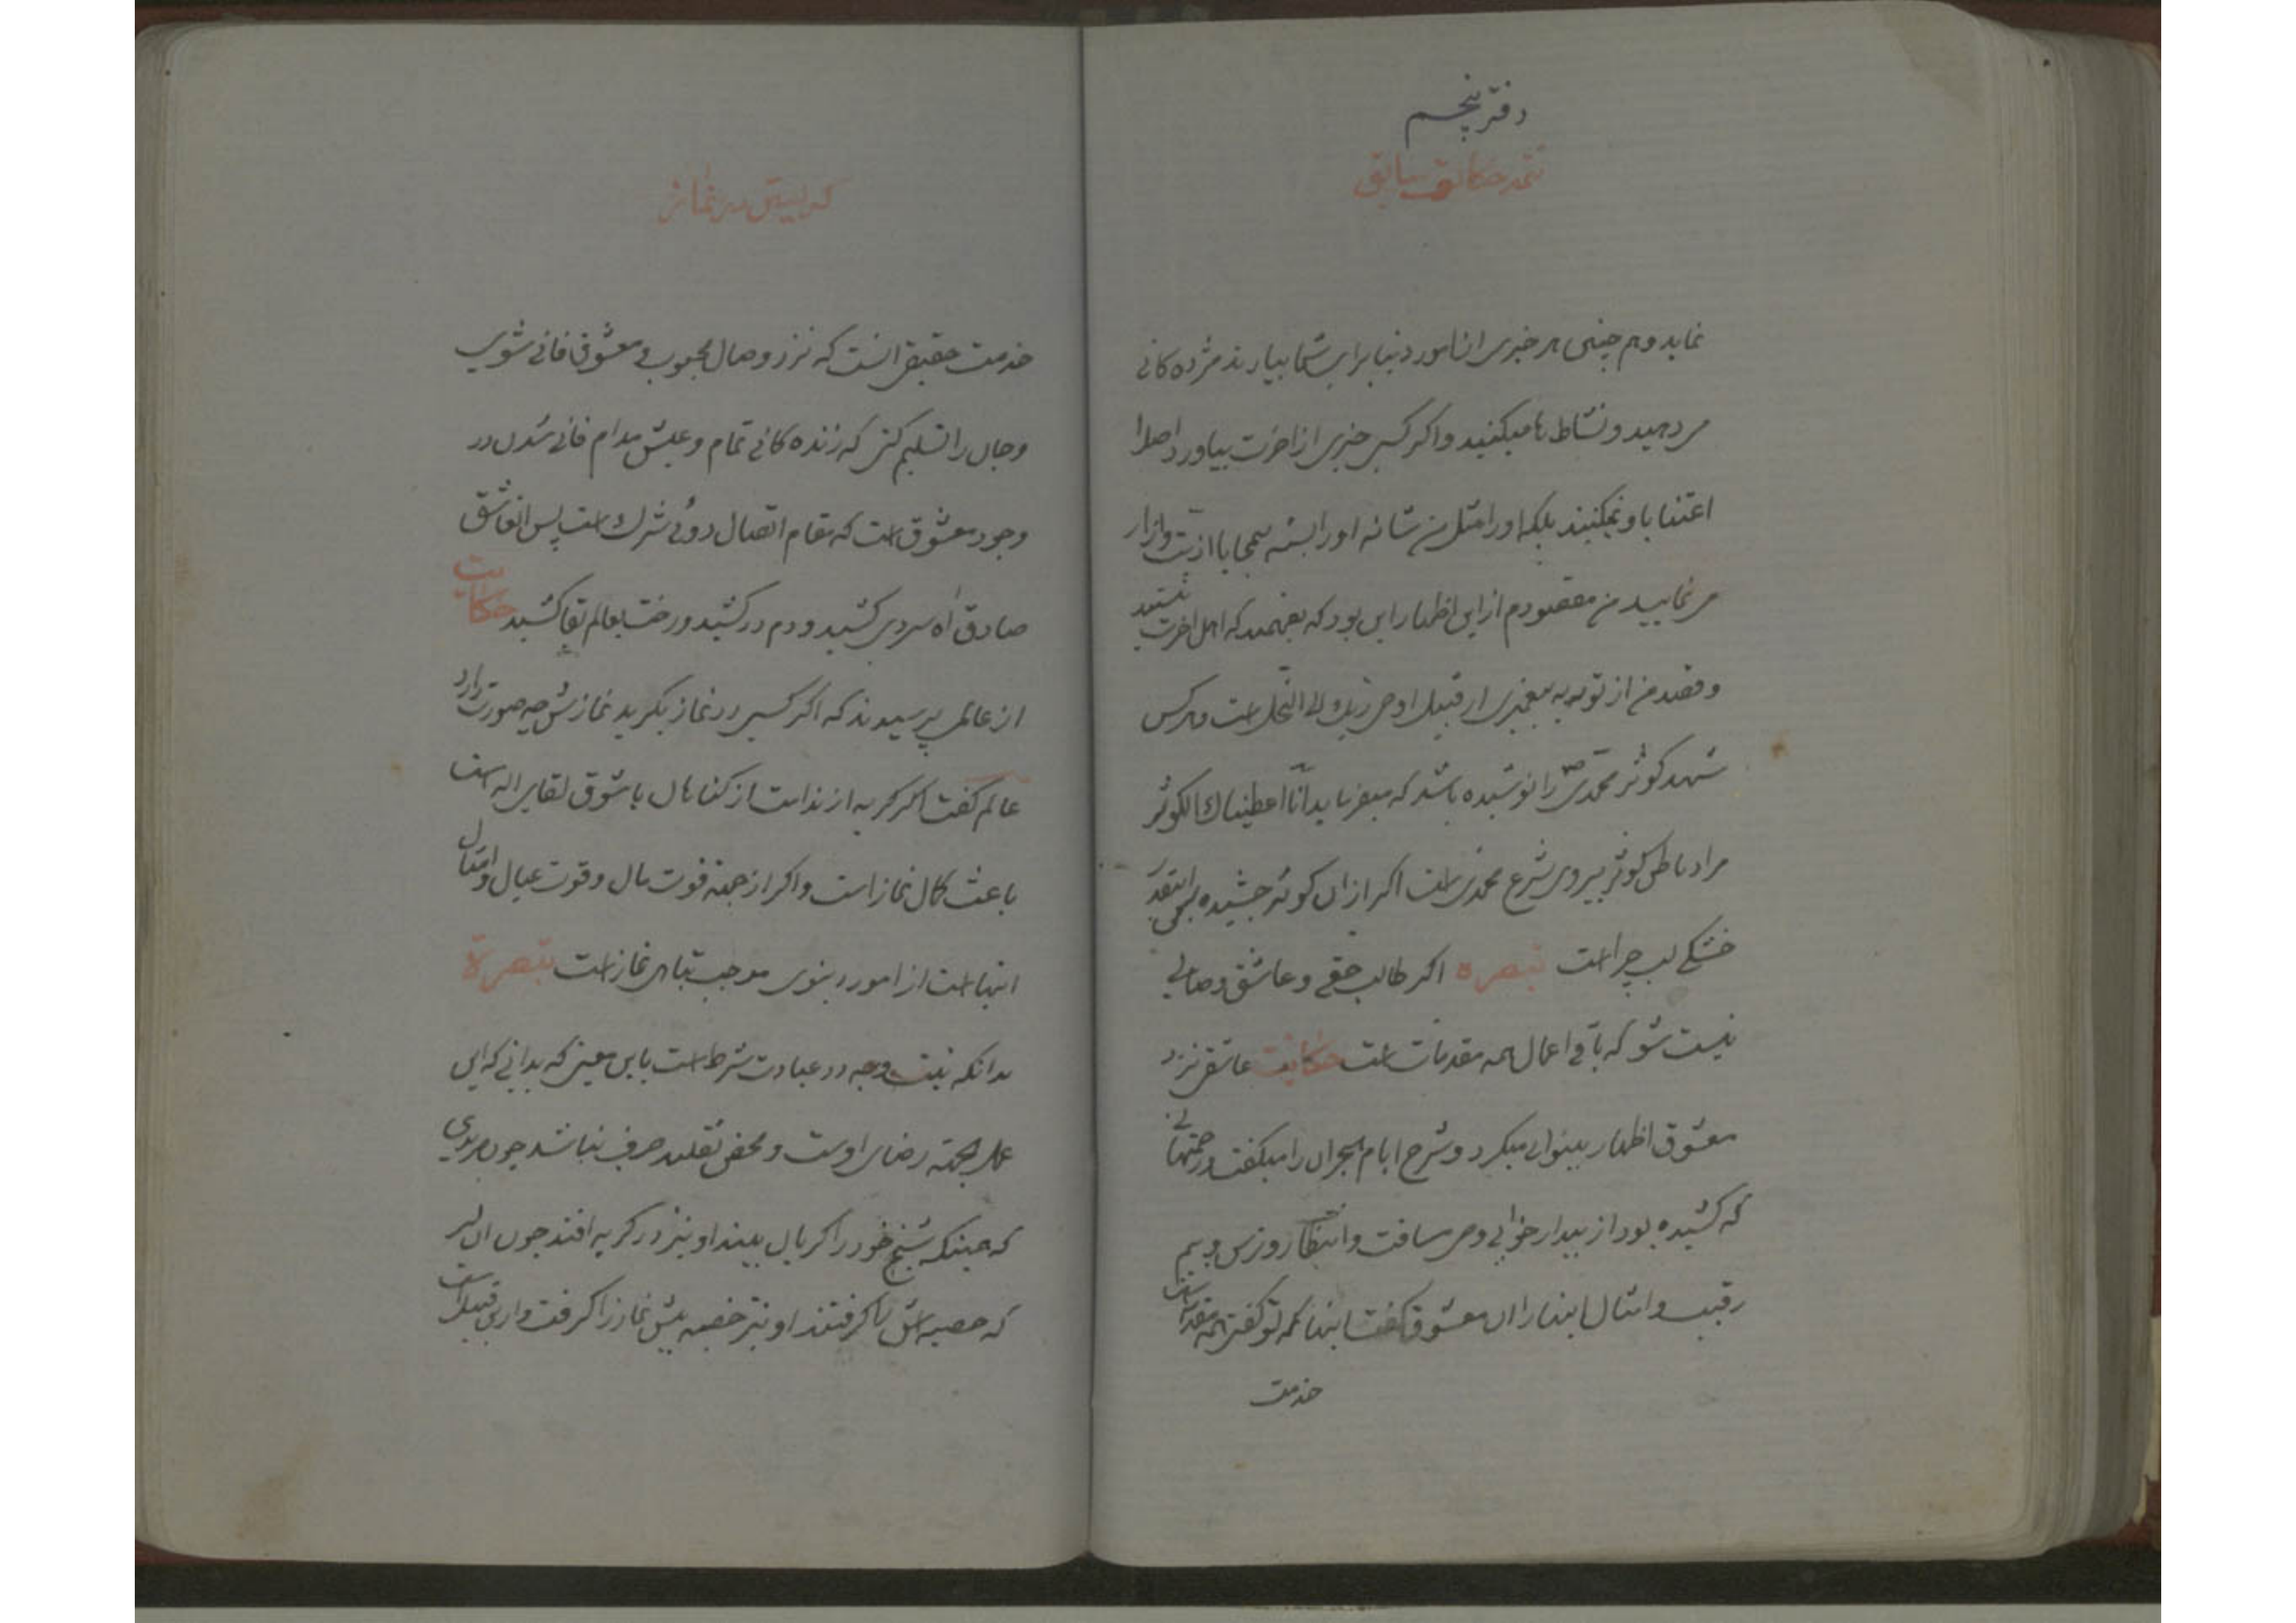 دفتر پنجم
تتمه حکایت سابق
نماید و هم چنین هر خبری از امور دنیا برای شما بیارند مژده کانی
می دهید و نشاط ها میکنید و اکر کسی خبری از اخرت بیاورد اصلا
اعتنا باو نمیکنید بلکه او را مثل من شانه او را بسته بیمحابا اذیت و ازار
می نمایید من مقصودم از این اظهار این بود که بفهمید که اهل اخرت نیستید
و قصد من از توبه به پیغمبری از قبیل اوحی ربک الی النحل است و هر کس
شهد کوثر محمدی ص را نوشیده باشد که میفرماید انّا اعطیناک الکوثر
مراد باطن کوثر پیروی شرع محمدی است اکر ازان کوثر چشیده پس اینقدر
خشکی لب چرا است تبصره اکر طالب حقی و عاشق وصالی
نیست شو که باقی اعمال همه مقدمات است حکایت عاشقی نزد
معشوق اظهار بینوائی میکرد و شرح ایام هجران را میکفت و زحمتهائی
که کشیده بود از بیدار خوابی و مسافت و انتظار روز و بیم
رقیب و امثال اینها ران معشوق کفت اینها که تو کفتی همه مقدمه است
خدمت
کریستن در نماز
خدمت حقیقی انست که نزد وصال محبوب و معشوق فانی شوی
و جان را تسلیم کنی که زنده کانی تمام و عیش مدام فانی شدن در
وجود معشوق است که مقام اتصال دوئی شرک است پس ان عاشق
صادق اه سردی کشید و دم در کشید و رخت بعالم بقا کشید حکایت
از عالمی پرسیدند که اکر کسی در نماز بکرید نمازش چه صورت دارد
عالم کفت اکر کریه از ندامت از کناهان یا شوق لقای اله است
باعث کمال نماز است و اکر از جهته فوت مال و فوت عیال و امثال
اینها است از امور دنیوی موجب تباهی نماز است تبصرة
بدانکه نیت وجه در عبادت شرط است باین معنی که بدانی که این
عمل بجهته رضای اوست و محض تقلید صرف نباشد چون مریدی
که همینکه شیخ خود را کریان بیند او نیز در کریه افتد چون ان
که خصیه اش را کرفتند او نیز خصیه پیش نماز را کرفت و از این قبیل است